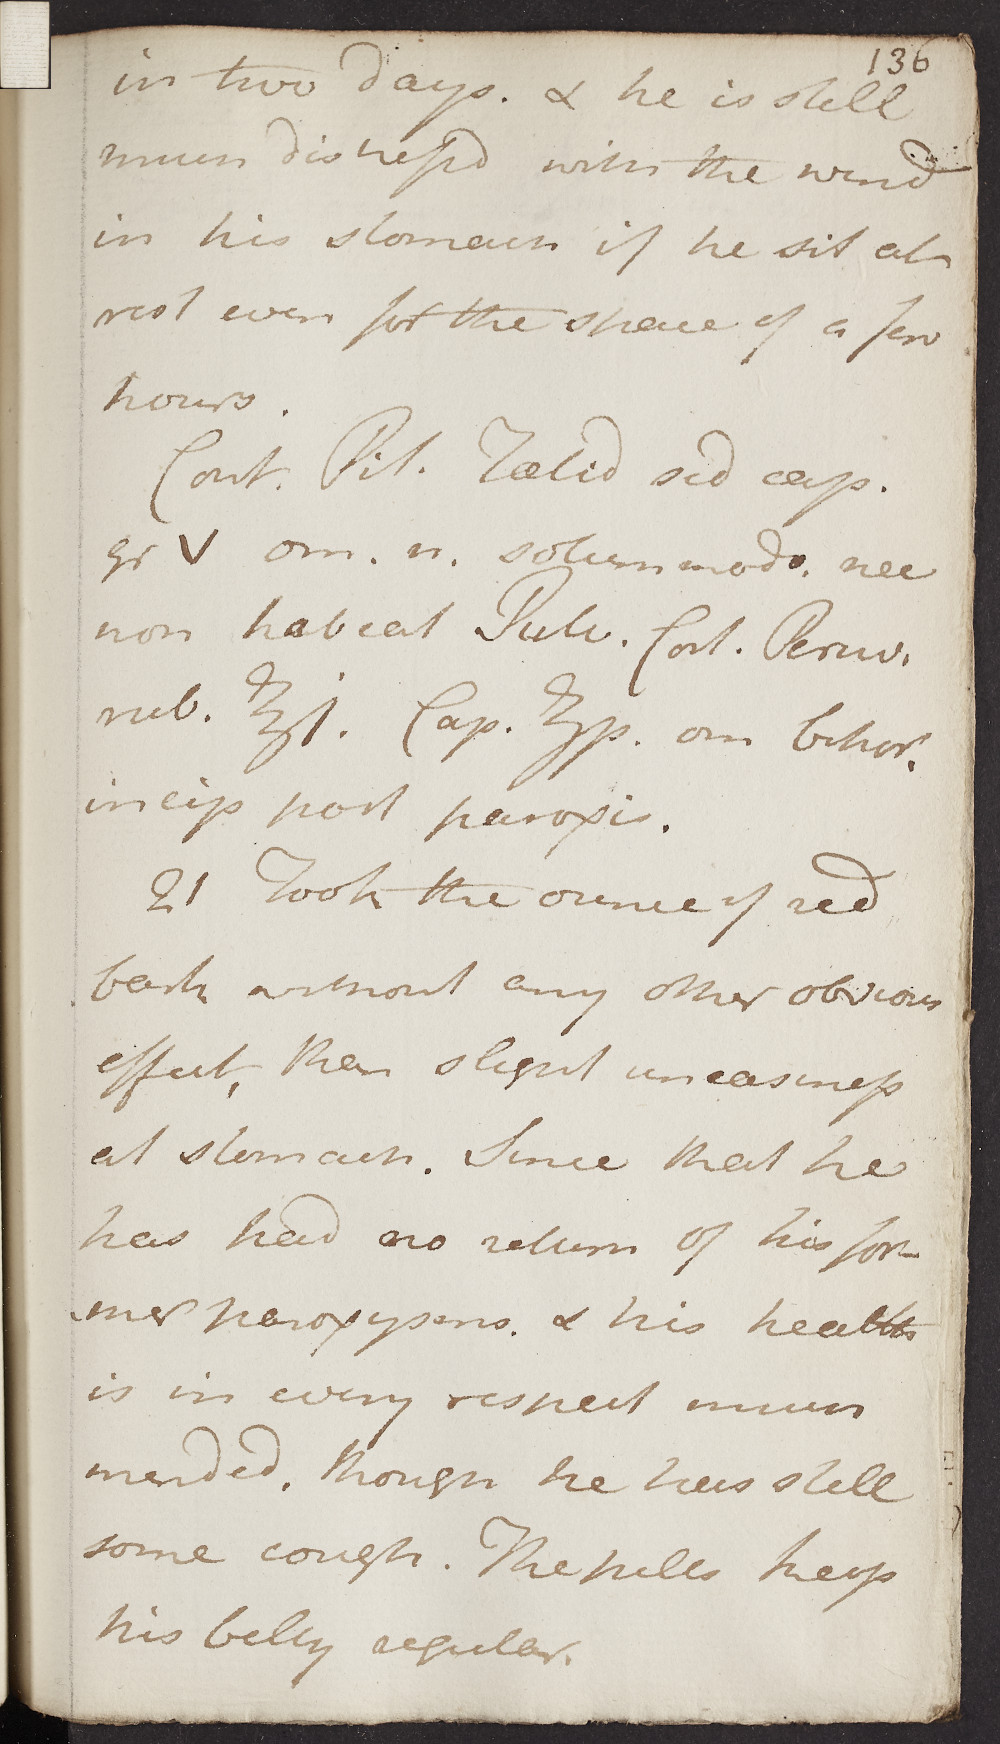 136
in two days. & he is still
much distressd with the wind
in his stomach if he sit at
rest even for the space of a few
hours.
Cont. Pil. Fœtid sed cap.
gr V om. n. solummodo. nec
non habeat Pulv. Cort. Peruv.
rub. ℥j. Cap. ʒp. om bihor.
incip post paroxis.
21 Took the ounce of red
bark without any other obvious
effect, than slight uneasiness
at stomach. Since that he
has had no return of his for-
mer paroxysms. & his health
is in every respect much
mended. though he has still
some cough. The pills keep
his belly regular.